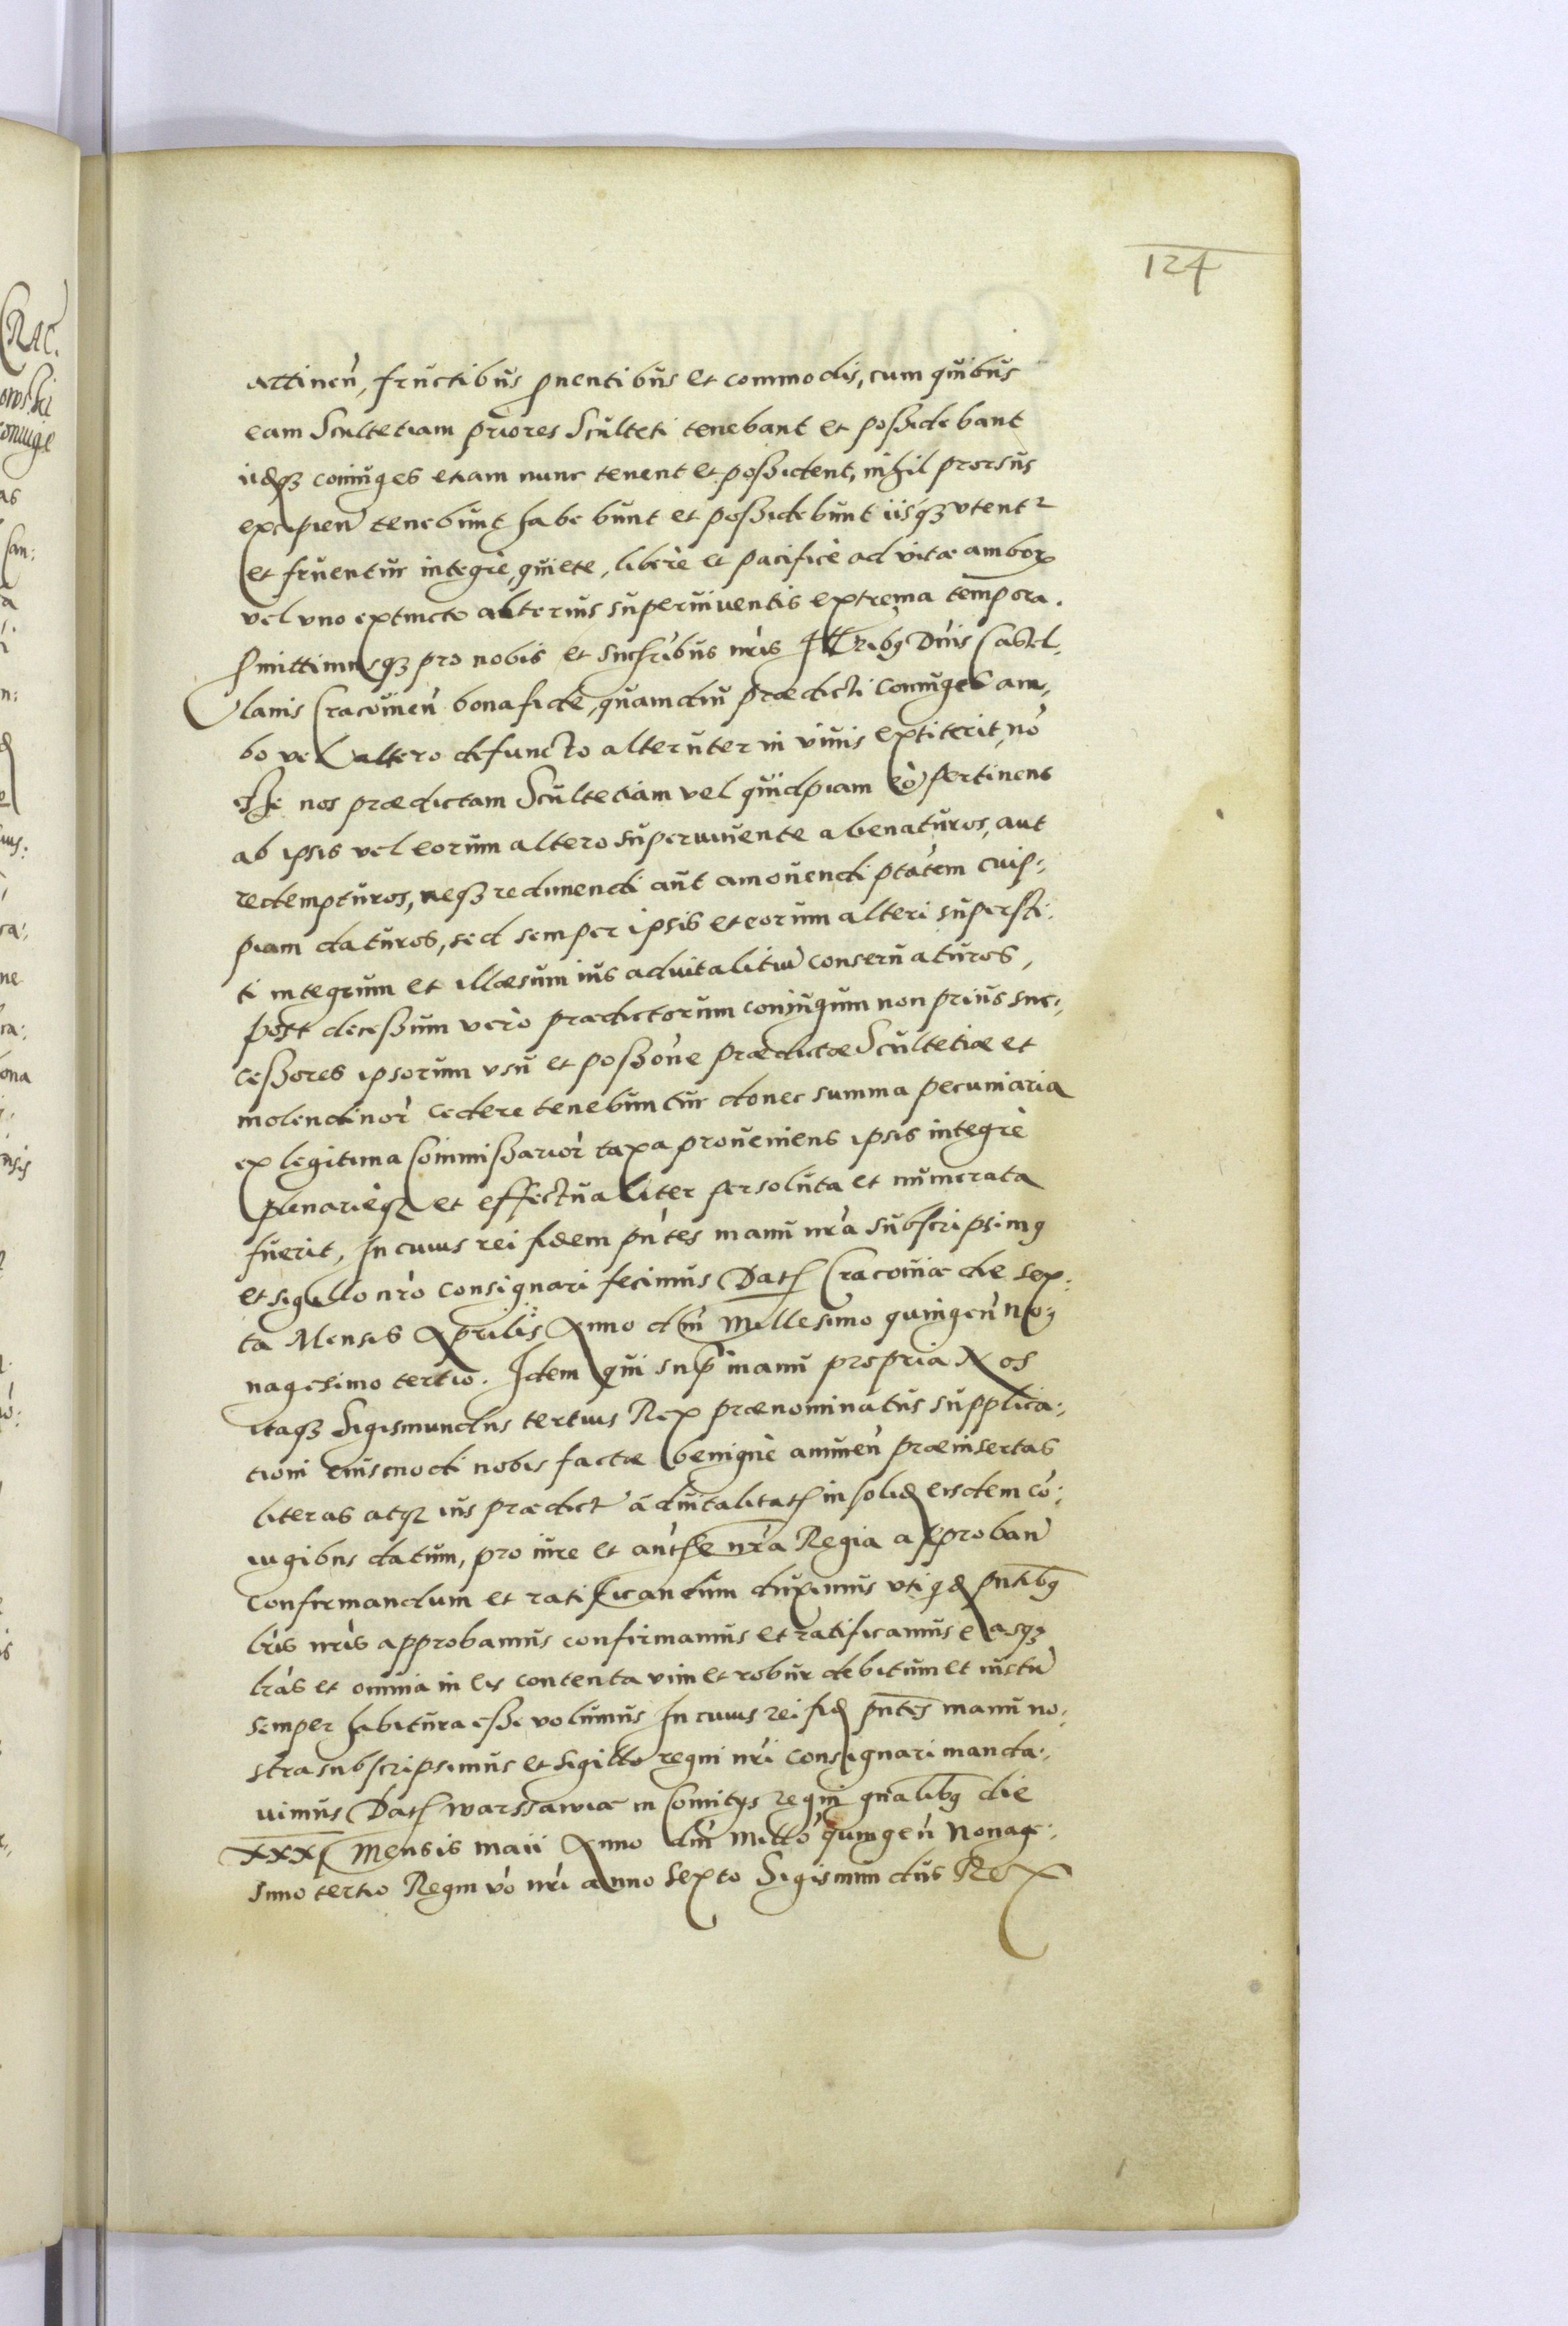 124
attinen̄, fructibus ꝓuentibus et commodis, cum quibus
eam Scultetiam priores Sculteti tenebant et possidebant
iidqꝫ coniuges etiam nunc tenent et possident, nihil prorsus
excipien̄ tenebunt habebunt et possidebunt iisqꝫ vtentr
et fruentur integrè, quiete, liberè et pacificè ad vitae amborꝝ
vel vno extincto alterius superuiuentis extrema tempora.
Promittimusqꝫ pro nobis et Succribus nr̄is Illribꝰ Dn̄is Castel,
lanis Cracouien̄ bona fide, quamdiu praedicti Coniuges am,
bo vel altero defuncto alteruter in viuis extiterit, nō
esse nos praedictam Scultetiam vel quidpiam eò pertinens
ab ipsis vel eorum altero superuiuente abenaturos, aut
redempturos, neqꝫ redimendi aut amouendi ptātem cuip:
piam daturos, sed semper ipsis et eorum alteri supersti:
ti integrum et illaesum ius aduitalitiū conseruaturos,
post decessum verò praedictorum coniugum non prius suc:
cessores ipsorum vsu et possōne praedictae Scultetiae et
molendinor̄ cedere tenebuntur donec summa pecuniaria
ex legitima Commissarior̄ taxa proueniens ipsis integrè
plenarieqꝫ et effectualiter persoluta et numerata
fuerit, In cuius rei fidem pn̄tes manu nr̄a subscripsimꝰ
et sigillo nr̄o consignari fecimus Datꝭ Cracouiae die sex:
ta Mensis Aprilis Anno dn̄i Millesimo quingen̄ No:
nagesimo tertio. Idem qui supr̄ manu propria Nos
itaqꝫ Sigismundus tertius Rex praenominatus supplica:
tioni eiusmodi nobis factae benignè annuen̄ praeinsertas
literas atqꝫ ius praedict̄ aduitalitatꝭ in solidꝭ eisdem cō:
iugibus datum, pro iure et aut̄he nr̄a Regia approban̄
confirmandum et ratificandum duximus vti qdꝭ pn̄tibꝰ
lr̄is nr̄is approbamus confirmamus et ratificamus easqꝫ
lr̄as et omnia in eis contenta vim et robur debitum et iustū
semper habitura esse volumus In cuius rei fidꝭ pn̄tes manu no:
stra subscripsimus et sigillo regni nr̄i consignari manda:,
uimus Datꝭ warssawiae in Comitijs regni gn̄alibꝰ die
XXX Mensis maii Anno dn̄i millō quingen̄ Nonage:
simo tertio Regni vō nr̄i anno sexto Sigismundus Rex